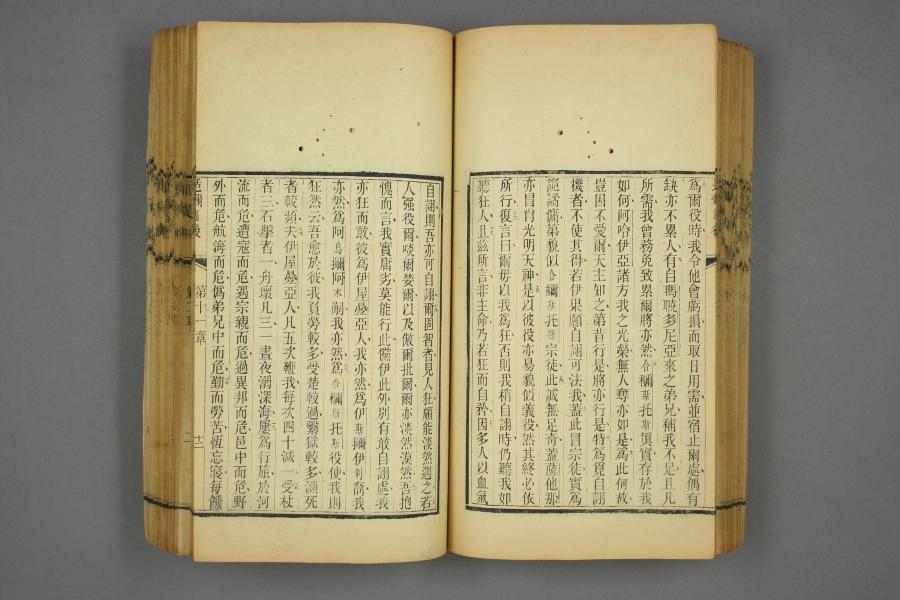 爲爾役時我令他會虧損而取日用需並宿止爾處偶有
缺亦不累人有自瑪 多尼亞來之弟兄補我不足且凡
所需我曾務免致累爾將亦然合 斯托斯眞實存於我
如何阿哈伊亞諸方我之光榮無人奪亦如是爲此何故
豈因不愛爾天主知之第昔行是將亦行是特爲 自詡
機者不使其得若伊果願自詡可法我蓋此冒宗徒實爲
詭譎傭第貌似合 斯托斯宗徒此誠無足奇蓋薩他那
亦冒肖光明天神是以彼役亦易貌似義役然其終必依
所行復言曰爾毋以我爲狂否則我稍自詡時仍聽我如
聽狂人且茲所言非主命乃若狂而自矜因多人以血氣
自詡則吾亦可自詡爾固智者見人狂願能淡然遇之若
人强役爾啖爾 爾以及傲爾批爾爾亦淡然漠然吾抱
愧而言我實庸劣莫能行此儻伊此外別有敢自詡處我
亦然爲阿烏 阿木嗣我亦然爲合 斯托斯役使我則
亦狂而敢彼爲伊屋 亞人我亦然爲伊斯 伊利裔我
狂然云吾愈於彼我頁勞較多受楚較過繫獄較多瀕死
者較頻夫伊屋 亞人凡五次鞭我每次四十減一受杖
者三石擊者一舟壞凡三一晝夜溺深海屢爲行旅於河
流而危遭寇而危遇宗親而危過異邦而危邑中而危野
外而危航海而危僞弟兄中而危勤而勞苦恆忘寢每饑
後
第十一章
十二